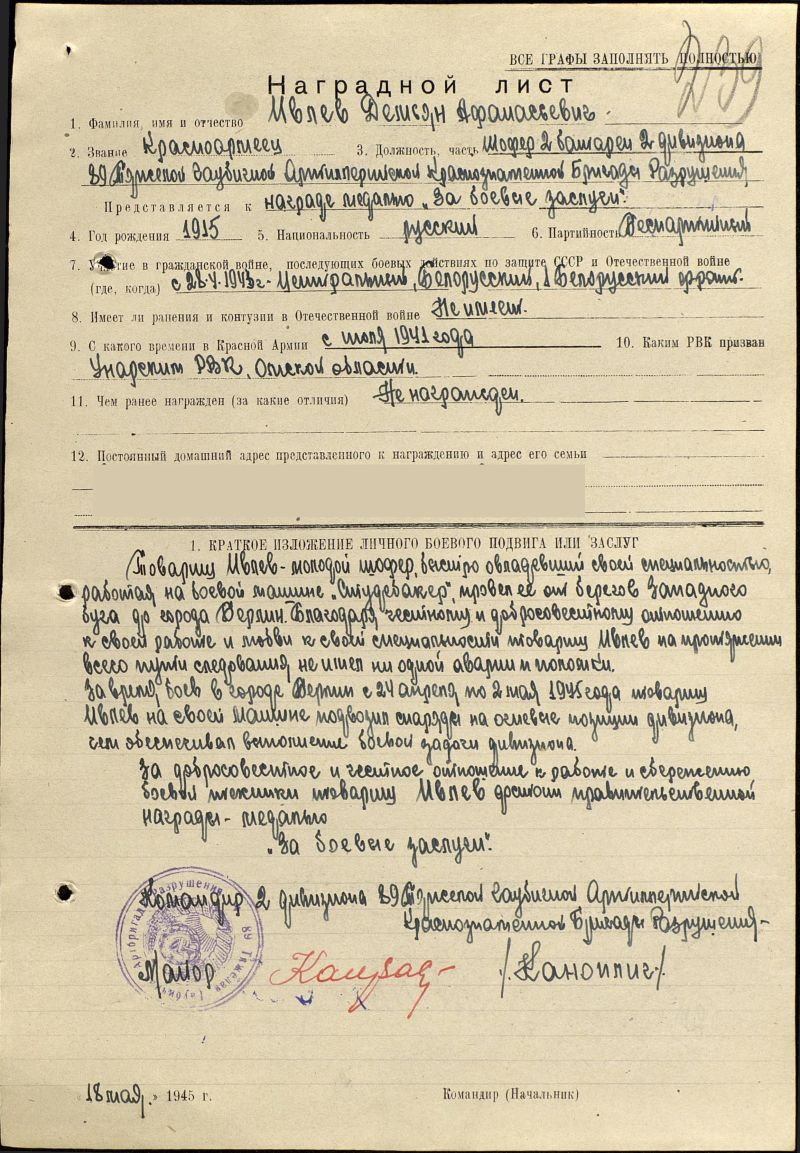 ВСЕ ГРАФЫ ЗАПОЛНЯТЬ ПОЛНОСТЬЮ
239
Наградной лист
1. Фамилия, имя и отчество Ивлев Демьян Афанасьевич.
2. Звание Красноармеец 3. Должность, часть Шофер 2 батареи 2 дивизиона
89 Тяжелой Гаубичной Артиллерийской Краснознаменной Бригады Разрушения
Представляется к награде медалью „За боевые заслуги".
4. Год рождения 1915 5. Национальность русский 6. Партийность Беспартийный
7. Участие в гражданской войне, последующих боевых действиях по защите СССР и Отечественной войне
(где, когда) с 1943г- Центральный, Белорусский, 1 Белорусский фронт.
8. Имеет ли ранения и контузии в Отечественной войне Не имеет.
9. С какого времени в Красной Армии с июля 1941 года 10. Каким РВК призван
РВК, Омской области.
11. Чем ранее награжден (за какие отличия) Не награжден.
12. Постоянный домашний адрес представленного к награждению и адрес его семьи
1. КРАТКОЕ ИЗЛОЖЕНИЕ ЛИЧНОГО БОЕВОГО ПОДВИГА ИЛИ ЗАСЛУГ
Товарищ Ивлев - молодой шофер, быстро овладевший своей специальностью,
работая на боевой машине „Студебакер", провел ее от берегов Западного
Буга до города Берлин. Благодаря честному и добросовестному отношению
к своей работе и любви к своей специальности товарищ Ивлев на протяжении
всего пути следования, не имел ни одной аварии и поломки.
За время боев в городе Берлин с 24 апреля по 2 мая 1945 года товарищ
Ивлев на своей машине подвозил снаряды на огневые позиции дивизиона,
чем обеспечивал выполнение боевой задачи дивизиона.
За добросовестное и честное отношение к работе и сбережению
боевой техники товарищ Ивлев достоин правительственной
награды - медалью
„За боевые заслуги".
Командир 2 дивизиона 89 Тяжелой Гаубичной Артиллерийской
Краснознаменной Бригады Разрушения -
Майор
18 мая 1945 г.
Командир (Начальник)